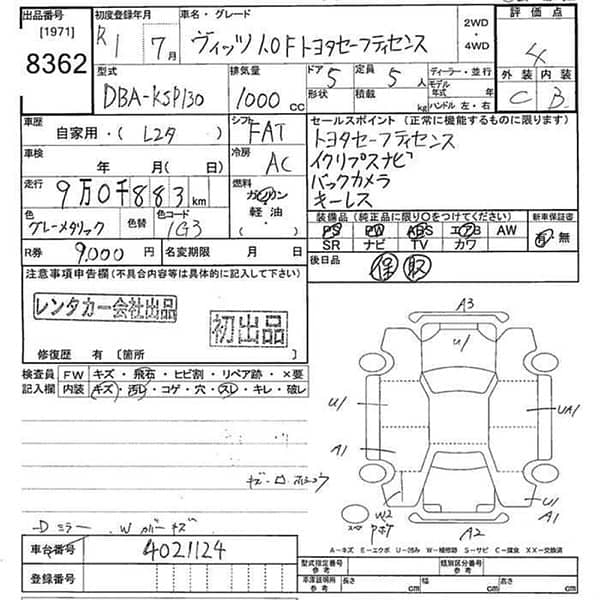 出品番号 初度登録年月 車名・グレード 評価点
[1971] R1 7月 ヴィッツ1.0Fトヨタセーフティセンス 2WD・4WD 4
8362 型式 排気量 ドア 5 定員 5人 ディーラー・並行 外装 内装
DBA-KSP130 1000cc 形状 積載 kg モデル年式 年 ハンドル 左・右 C B
車歴 シフト セールスポイント(正常に機能するものに限ります)
自家用・(レンタ FAT トヨタセーフティセンス
車検 年 月( 日) 冷房 AC イクリプスナビ
走行 9万0千883km 燃料 ガソリン 軽油 バックカメラ
キーレス
色 グレーメタリック 色替 色コード 1G3 装備品(純正品に限り○をつけてください) 新車保証書
PS PW ABS エアB AW 有・無
SR ナビ TV カワ
R券 9,000円 名変期限 月 日 後日品 保 取
注意事項申告欄(不具合内容等は具体的に記入して下さい)
レンタカー会社出品
初出品
修復歴 有〔箇所
検査員 FW キズ・飛石・ヒビ割・リペア跡・×要
記入欄 内装 キズ・汚レ・コゲ・穴・スレ・キレ・破レ
A3
U1
U1 UA1
A1
U1
A1
W2
A2
スペア
Dミラー W カバーキズ
A-キズ E-エクボ U-凹み W-補修跡 S-サビ C-腐食 XX-交換済
車台番号 4021124
登録番号
型式指定番号 参考 類別区分番号 参考
車庫証明用 参考 長さ cm 幅 cm 高さ cm